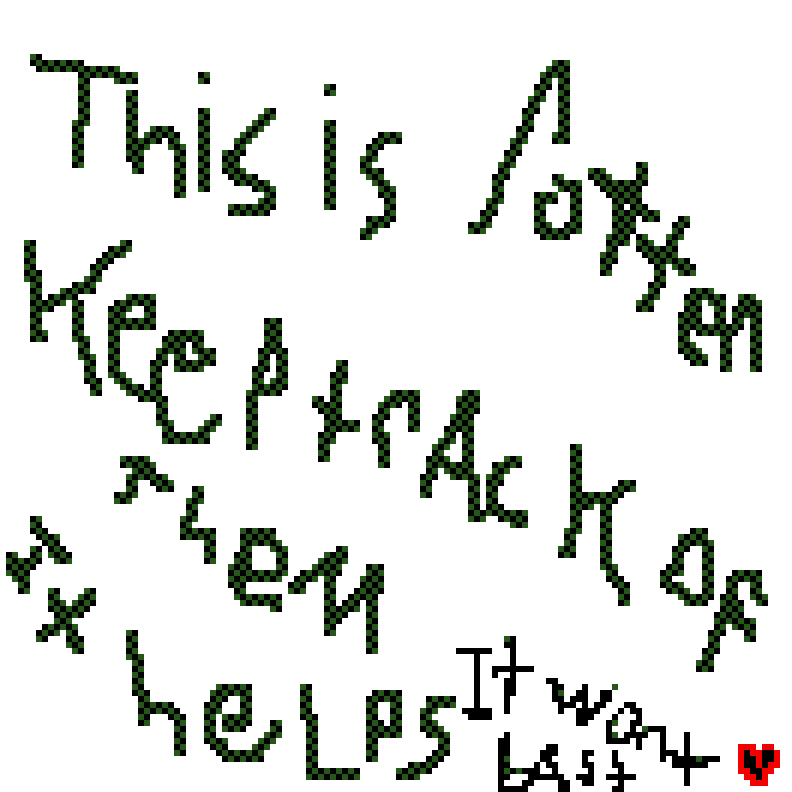 This is 1 often
Keep trAcK of
them
It heLps
It wont
LAst